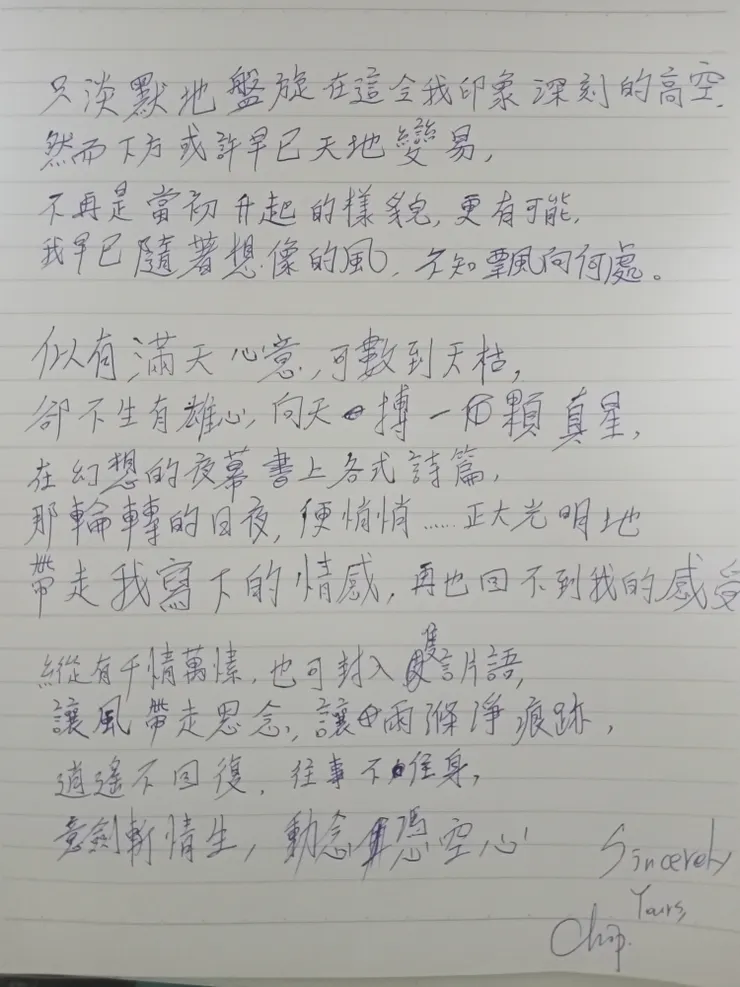 只淡默地盤旋在這令我印象深刻的高空,
然而下方或許早已天地變易,
不再是當初升起的樣貌,更有可能,
我早已隨著想像的風,不知飄向何處。
似有滿天心意,可數到天枯,
卻不生有雄心,向天搏一顆真星,
在幻想的夜幕書上各式詩篇,
那輪轉的日夜,便悄悄……正大光明地
帶走我寫下的情感,再也回不到我的感受
縱有千情萬愫,也可封入隻言片語,
讓風帶走思念,讓雨滌淨痕跡,
逍遙不回復,往事不住身,
意劍斬情生,動念憑空心
Sincerely
Yours,
Chip.